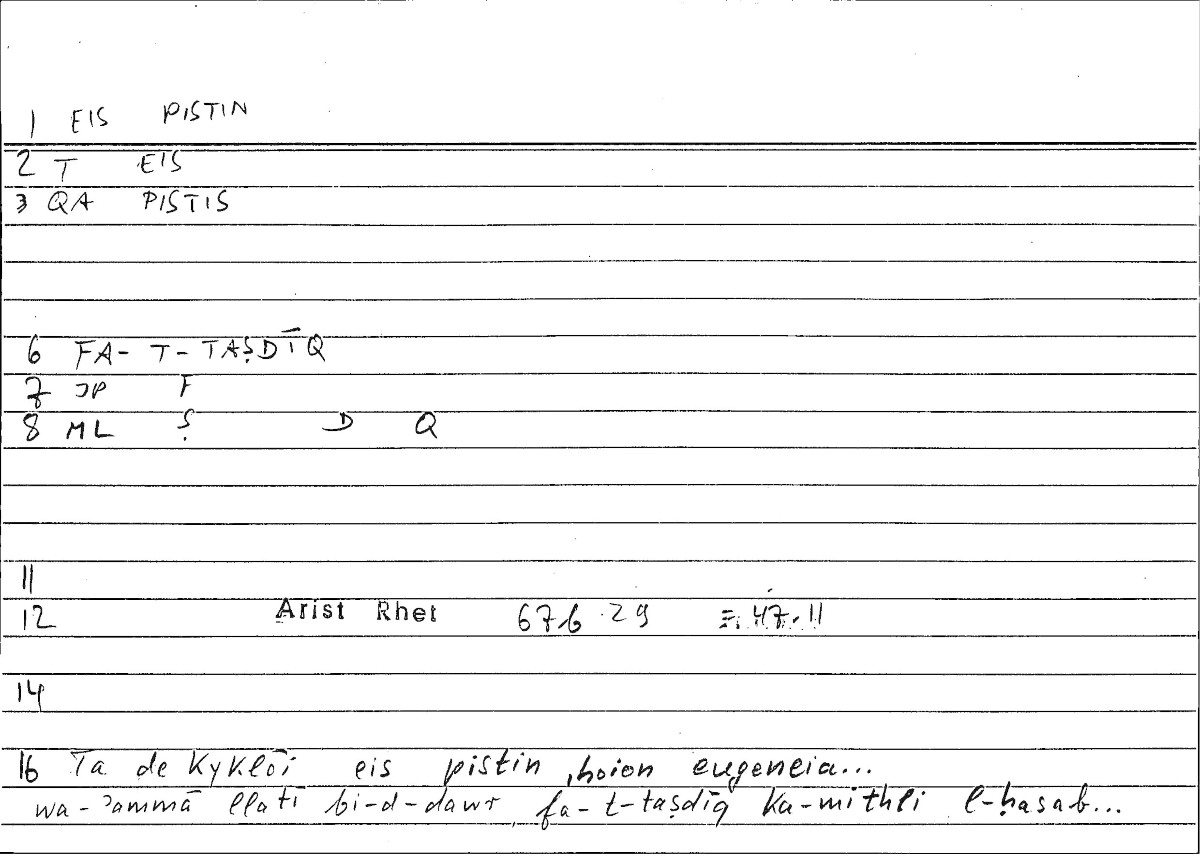 1 EIS PISTIN
2 T EIS
3 QA PISTIS
6 FA-T-TAṢDĪQ
7 JP F
8 ML Ṣ D Q
11
12 Arist Rhet 67b.29 = 47.11
14
16 Ta de Kyklōi eis pistin, hoion eugeneia...
wa-ʾammā llatī bi-d-dawr, fa-t-taṣdīq ka-mithli l-ḥasab...